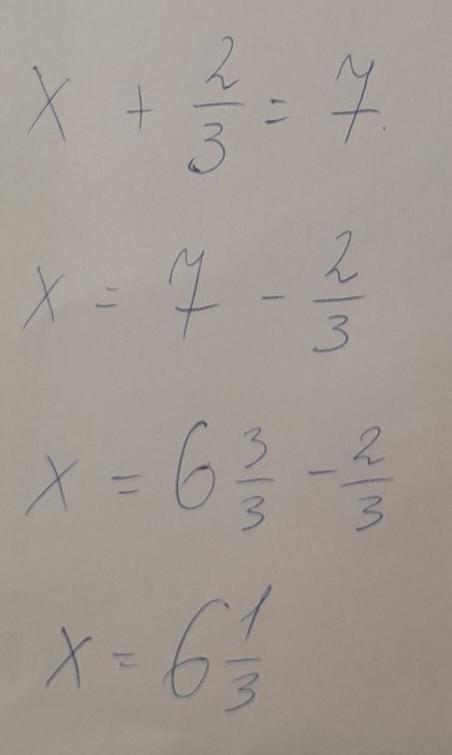 x + 2/3 = 7.
x = 7 - 2/3
x = 6 3/3 - 2/3
x = 6 1/3